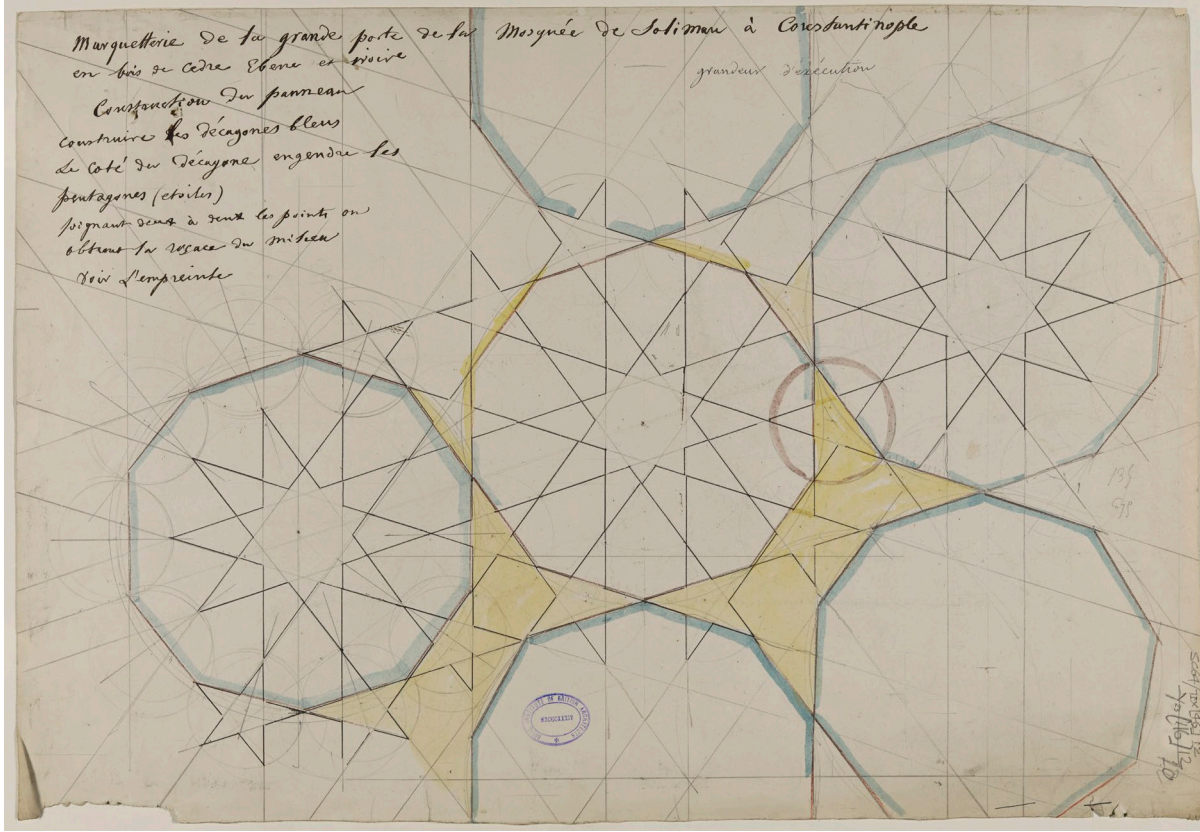 Marquetterie de la grande porte de la Mosquée de Soliman à Constantinople
en bois de Cedre Ebene et ivoire
grandeur d'exécution
Construction du panneau
construire les décagones bleus
Le coté du Décagone engendre les
pentagones (etoiles)
joignant deux à deux les points on
obtient la rosace du milieu
Voir l'empreinte